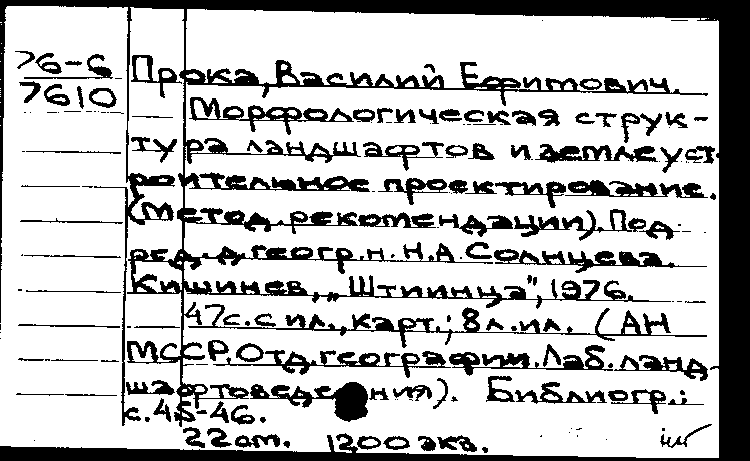 76-6
7610
Прока, Василий Ефимович.
Морфологическая струк-
тура ландшафтов и землеуст-
роительное проектирование.
(Метод. рекомендации). Под
ред. д. геогр. н. Н.А. Солнцева.
Кишинев, „Штиинца", 1976.
47 с. с ил., карт.; 8 л. ил. (АН
МССР. Отд. географии. Лаб. ланд-
шафтоведения). Библиогр.:
с. 45-46.
22 от. 1200 экз.